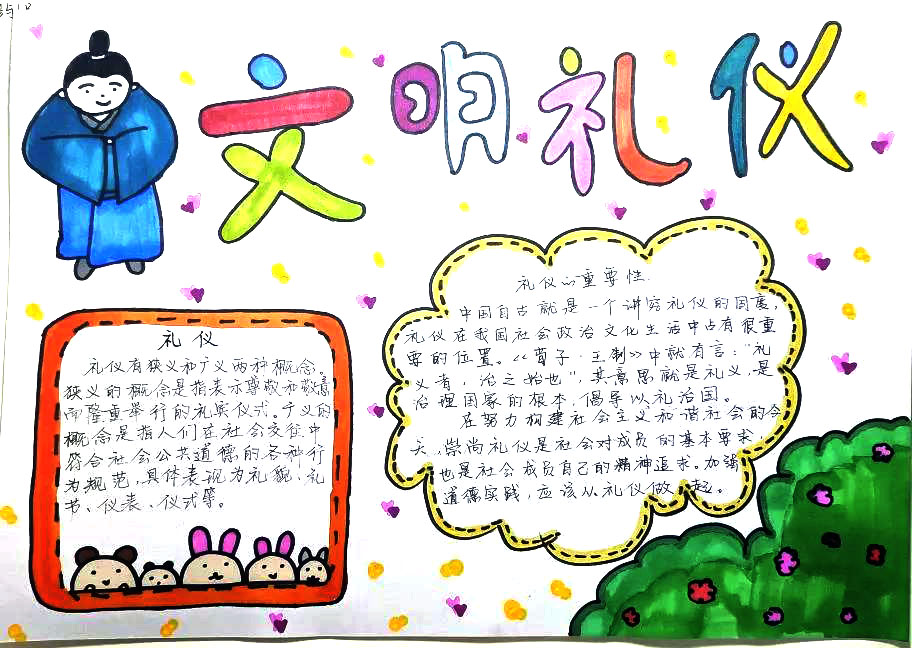 文明礼仪
礼仪
礼仪有狭义和广义两种概念。
狭义的概念是指表示尊敬和敬意
而隆重举行的礼宾仪式。广义的
概念是指人们在社会交往中
符合社会公共道德的各种行
为规范，具体表现为礼貌、礼
节、仪表、仪式等。
礼仪的重要性
中国自古就是一个讲究礼仪的国度，
礼仪在我国社会政治文化生活中占有很重
要的位置。《荀子·王制》中就有言："礼
义者，治之始也"，其意思就是礼义，是
治理国家的根本，倡导以礼治国。
在努力构建社会主义和谐社会的今
天，崇尚礼仪是社会对成员的基本要求，
也是社会成员自己的精神追求。加强
道德实践，应该从礼仪做起。